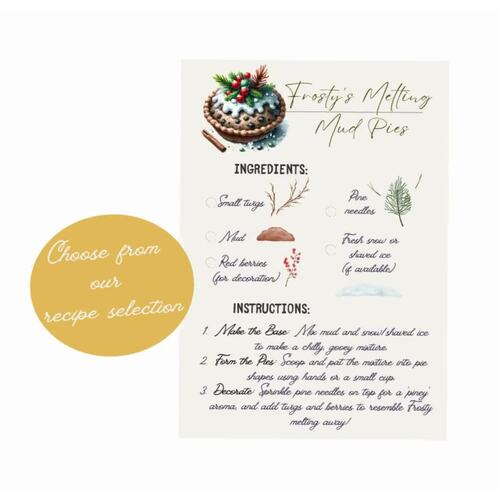 Frosty's Melting
Mud Pies
INGREDIENTS:
Small twgs
Pine
needles
Mud
Fresh snow or
shaved ice
(if available)
Red berries
(for decoration)
INSTRUCTIONS:
1. Make the Base: Mix mud and snow/shaved ice
to make a chilly, gooey mixture.
2. Form the Pies: Scoop and pat the mixture into pie
shapes using hands or a small cup.
3. Decorate: Sprinkle pine needles on top for a 'piney'
aroma, and add twgs and berries to resemble Frosty
melting away!
Choose from
our
recipe selection